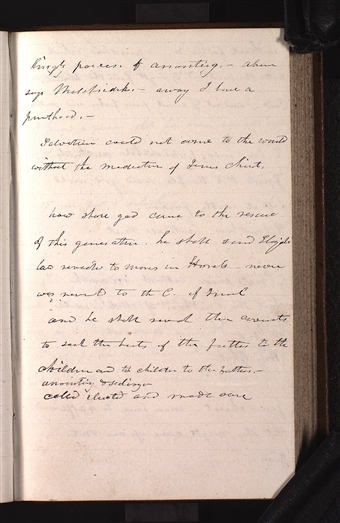 King's powers & anointing. – Abum
says Melchisedek – away I have a
priesthood. –
Salvation could not come to the world
without the mediation of Jesus Christ.
how shall god come to the rescue
of this generation. he shall send Elijah
law revealed to moses in Horeb – never
was reveald to the C. of Israel
and he shall reveal the covenants
to seal the hearts of the fathers to the
children and the children to the fathers. –
anointing & sealing –
called elected and made sure